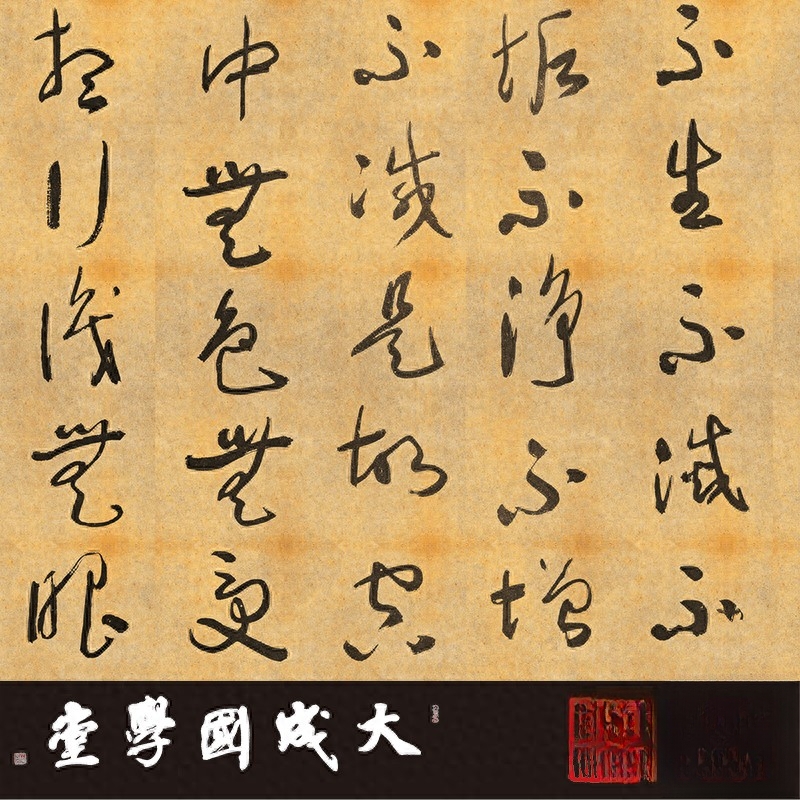 不生不滅不
垢不淨不增
不減是故空
中無色無受
想行識無眼
大成國學堂